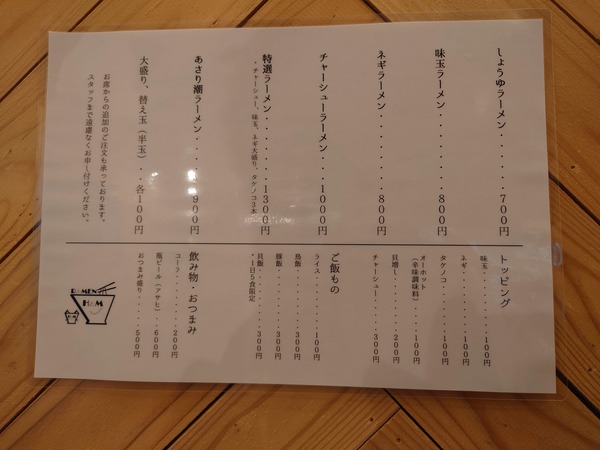 しょうゆラーメン・・・・・・700円
味玉ラーメン・・・・・・・・800円
ネギラーメン・・・・・・・・800円
チャーシューラーメン・・・1000円
特選ラーメン・・・・・・・1300円
・チャーシュー、味玉、ネギ大盛り、タケノコ3本
あさり潮ラーメン・・・・・900円
大盛り、替え玉(半玉)・・各100円
お席からの追加のご注文も承っております。
スタッフまで遠慮なくお申し付けください。
トッピング
味玉・・・・・・・・・100円
ネギ・・・・・・・・・100円
タケノコ・・・・・・・100円
オーホット
(辛味調味料)・・・・100円
貝増し・・・・・・・・200円
チャーシュー・・・・・300円
ご飯もの
ライス・・・・・・・・100円
鳥飯・・・・・・・・・300円
豚飯・・・・・・・・・300円
貝飯・・・・・・・・・300円
・1日5食限定
飲み物・おつまみ
コーラ・・・・・・・・200円
瓶ビール(アサヒ)・・600円
おつまみ盛り・・・・・500円
RAMEN
H&M